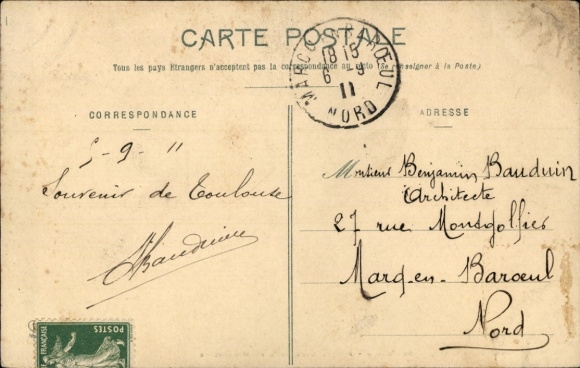 CARTE POSTALE
Tous les pays Etrangers n'acceptent pas la correspondance au recto (Se renseigner à la Poste)
MARCQ-EN-BARŒUL
18 15
6 - 9
11
NORD
CORRESPONDANCE
5-9-11
Souvenir de Toulouse
ADRESSE
Monsieur Benjamin Bauduin
Architecte
27 rue Montgolfier
Marq-en-Baroeul
Nord
POSTES
FRANÇAISE